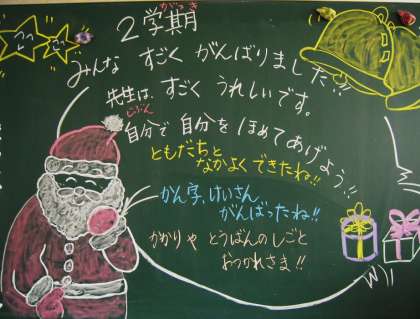 ２学期
がっき
みんな すごく がんばりました!!
先生は、すごく うれしいです。
じぶん
自分で 自分を ほめてあげよう!!
ともだちと
なかよくできたね!!
かん字、けいさん
がんばったね!!
かかりや とうばんのしごと
おつかれさま!!